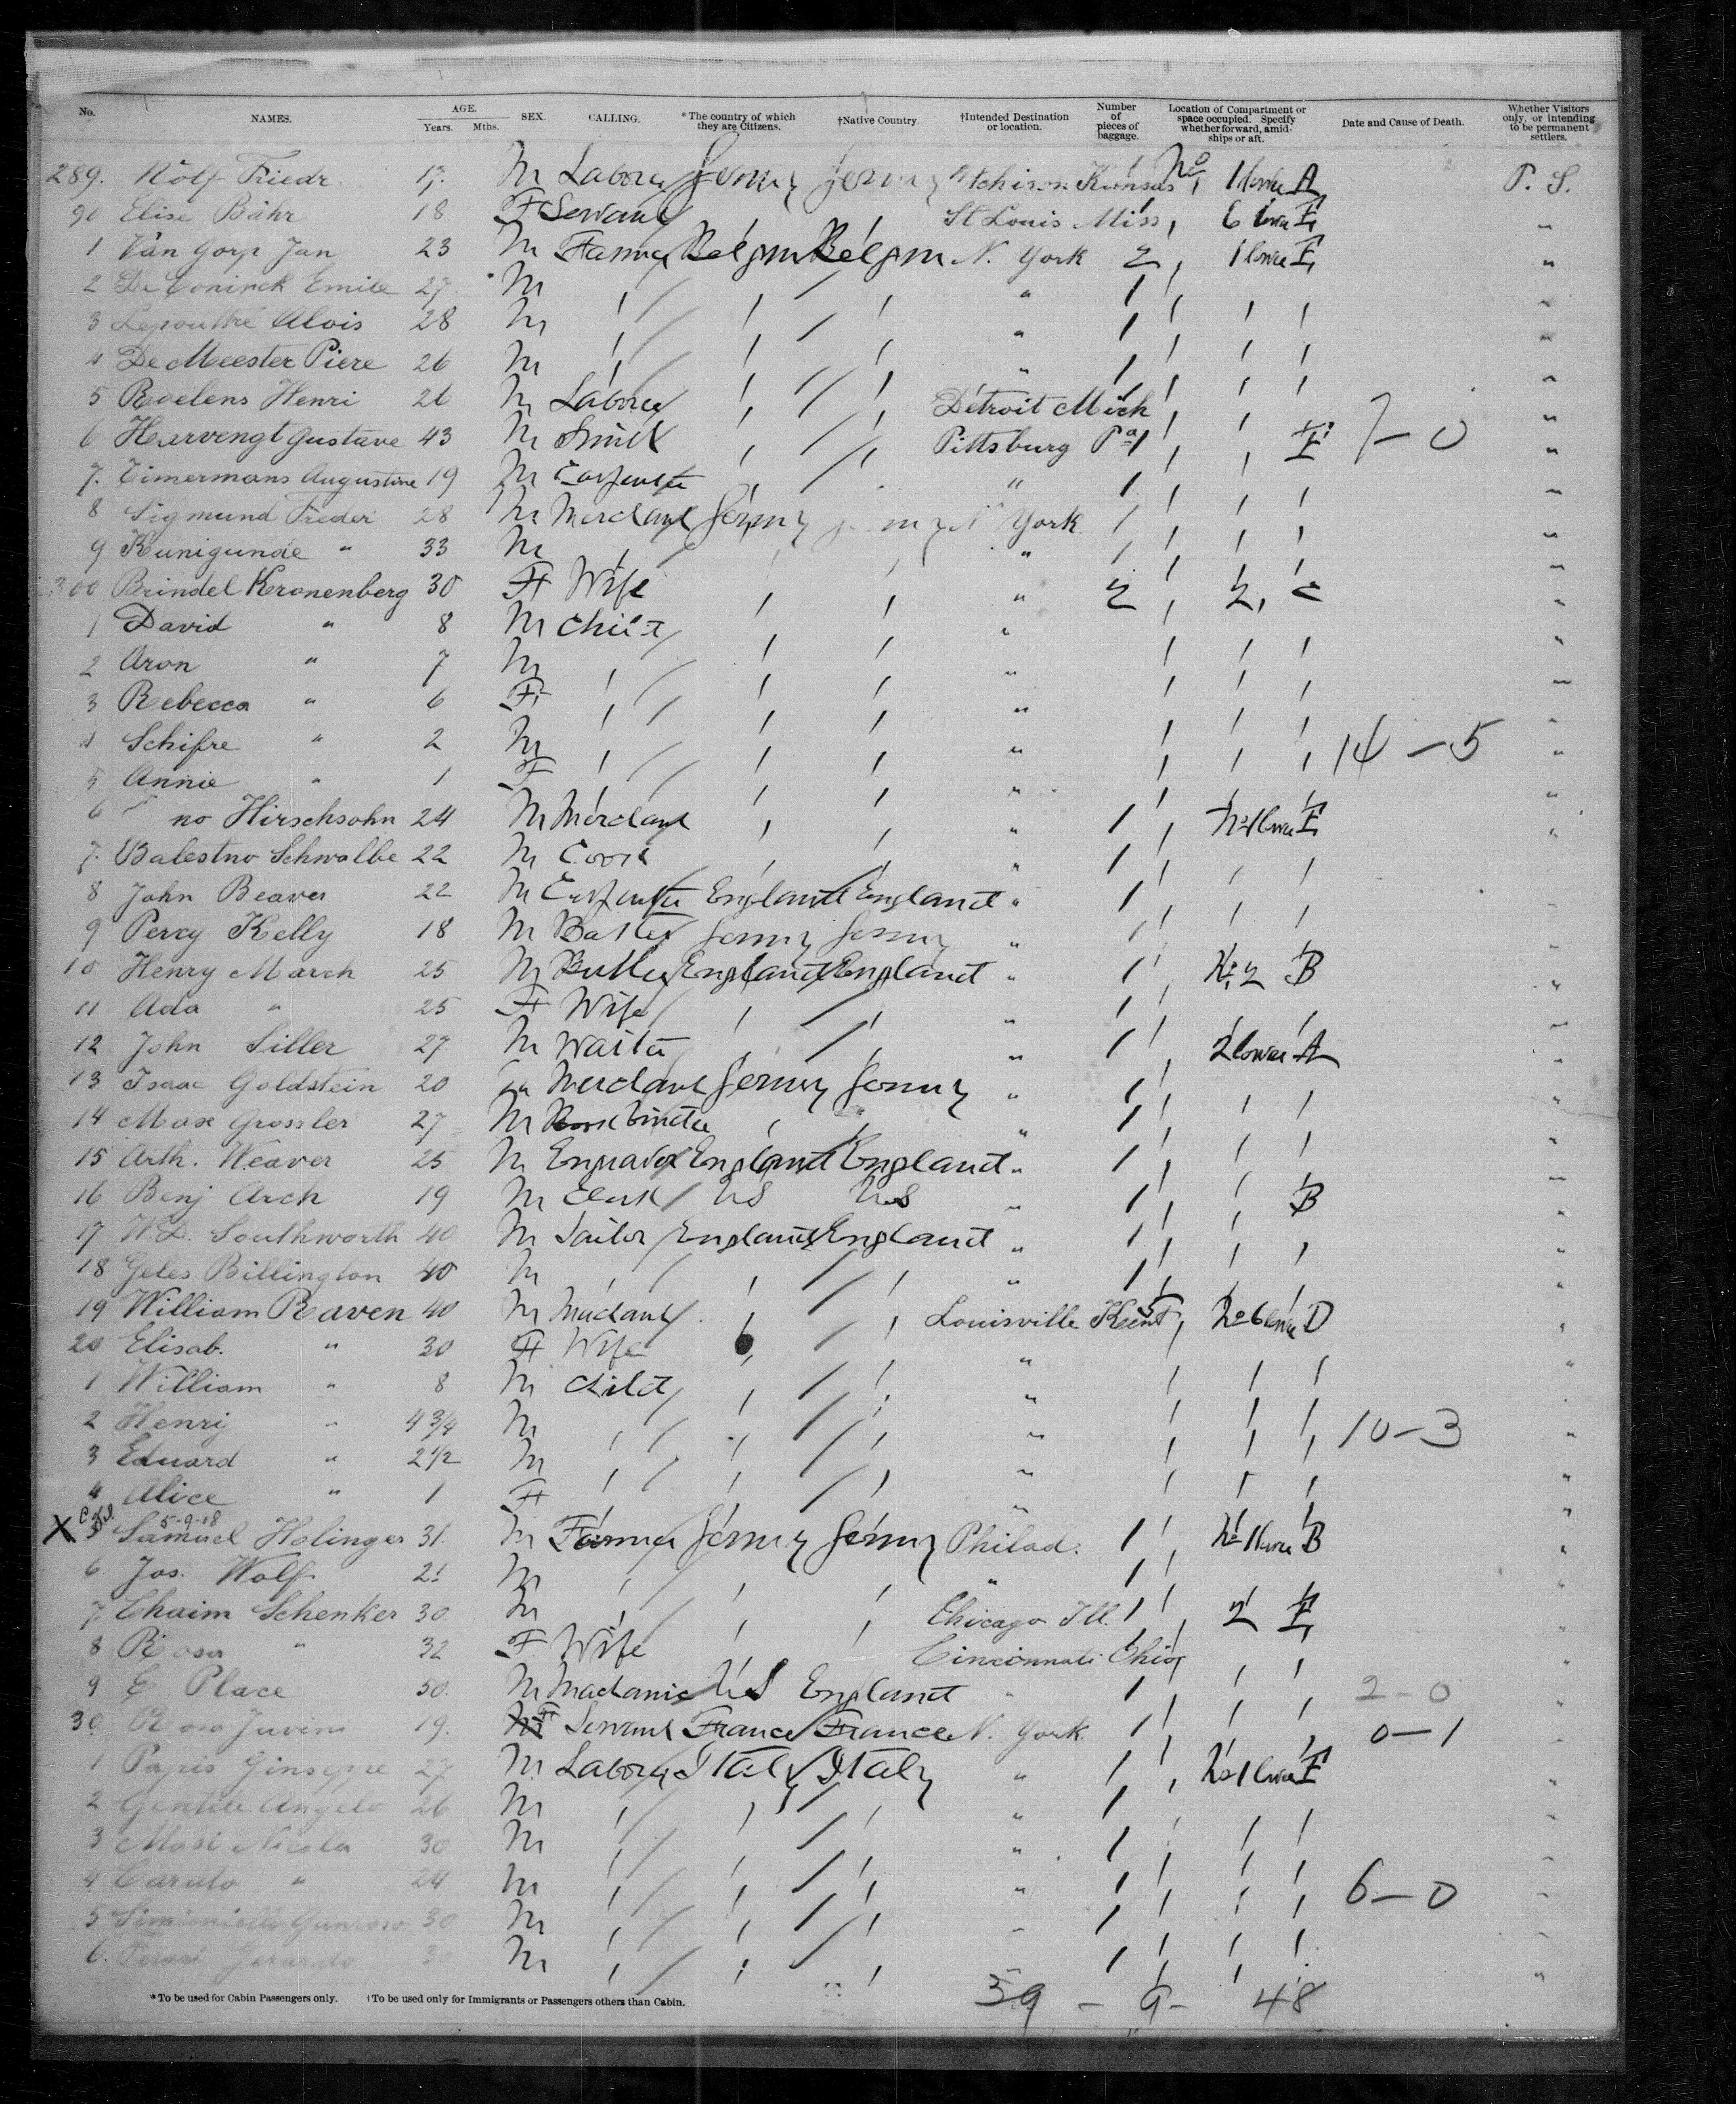 No. NAMES. AGE. Years. Mths. SEX. CALLING. *The country of which they are Citizens. †Native Country. †Intended Destination or location. Number of pieces of baggage. Location of Compartment or space occupied. Specify whether forward, amidships or aft. Date and Cause of Death. Whether Visitors only, or intending to be permanent settlers.
289. Friedr. 17. M Labourer Germany Germany Atchison Kansas 1 No 1 lower A P. S.
90 Elise Bähr 18 F Servant St Louis Miss, 6 lower E "
1 Van Gorp Jan 23 M Farmer Belgm Belgm N. York 2 , 1 lower E "
2 De Coninck Emile 27 M " 1 "
3 Lepouthre Alois 28 M " 1 "
4 De Meester Piere 26 M " 1 "
5 Roelens Henri 26 M Labourer Detroit Mich 1 "
6 Gustave 43 M Smith Pittsburg Pa 1 E 7-0 "
7. Timermans Augustine 19 M Carpenter " 1 "
8 Sigmund Freder 28 M Merchant Germny Germny N York 1 "
9 Kunigunde " 33 M " 1 "
300 Brindel Kronenberg 30 F Wife " 2 , 2, C "
1 David " 8 M Child " "
2 Aron " 7 M " "
3 Rebecca " 6 F " "
4 Schifre " 2 M " 14-5 "
5 Annie " 1 F " "
6 no Hirschsohn 24 M Merchant " 1 , No 1 lower E "
7. Balestno Schwalbe 22 M Cook " 1 "
8 John Beaver 22 M Carpenter England England " 1
9 Percy Kelly 18 M Germny Germny " 1 "
10 Henry March 25 M Butler England England " 1 , No 2 B "
11 Ada " 25 F Wife " 1 "
12 John Siller 27 M Waiter " 1 , 2 lower A "
13 Isaac Goldstein 20 M Merchant Germny Germny " 1 "
14 Max Grossler 27 M Bookbinder " 1 "
15 Arth. Weaver 25 M Engraver England England " 1 "
16 Benj Arch 19 M Clerk US US " 1 B "
17 W.D. Southworth 40 M Tailor England England " 1 "
18 Geles Billington 40 M " 1 "
19 William Raven 40 M Merchant Louisville Kent, 5 No 6 lower D "
20 Elisab. " 30 F Wife " "
1 William " 8 M Child " "
2 Henry " 4 3/4 M " 10-3 "
3 Eduard " 2 1/2 M " "
4 Alice " 1 F " "
X 5 5-9-18 Samuel Holinger 31. M Farmer Germny Germny Philad. 1 No 1 lower B "
6 Jos. Wolf 21 M " 1 "
7. Chaim Schenker 30 M Chicago Ill. 1 , 2 E "
8 Rosa " 32 F Wife Cincinnati Ohio "
9 E Place 50. M Mechanic US England " 1 2-0 "
30 Rosa Juvin 19. F Servant France France N. York 1 0-1 "
1 Papis Ginseppe 27 M Labourer Italy Italy " 1 , No 1 lower E "
2 Gentile Angelo 26 M " 1 "
3 Masi Nicola 30 M " 1 "
4 Caruto " 24 M " 1 6-0 "
5 30 M " 1 "
6. Gerardo 30 M 1 "
*To be used for Cabin Passengers only. †To be used only for Immigrants or Passengers others than Cabin. 39 - 9 - 48